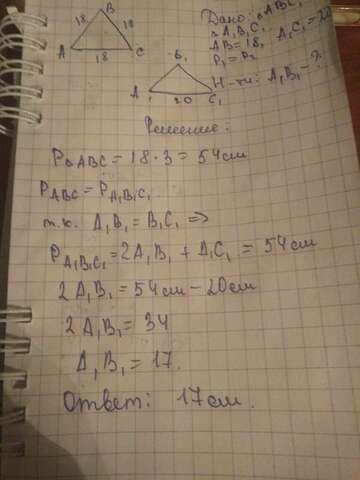 B
18 18
A 18 C
Дано: △ABC,
△A₁B₁C₁
AB = 18, A₁C₁ = 20
P₁ = P₂
Н-ти: A₁B₁ - ?
B₁
A₁ 20 C₁
Решение:
P△ABC = 18 · 3 = 54 см
PABC = PA₁B₁C₁
т.к. A₁B₁ = B₁C₁ ⇒
PA₁B₁C₁ = 2A₁B₁ + A₁C₁ = 54 см
2A₁B₁ = 54 см - 20 см
2A₁B₁ = 34
A₁B₁ = 17.
Ответ: 17 см.